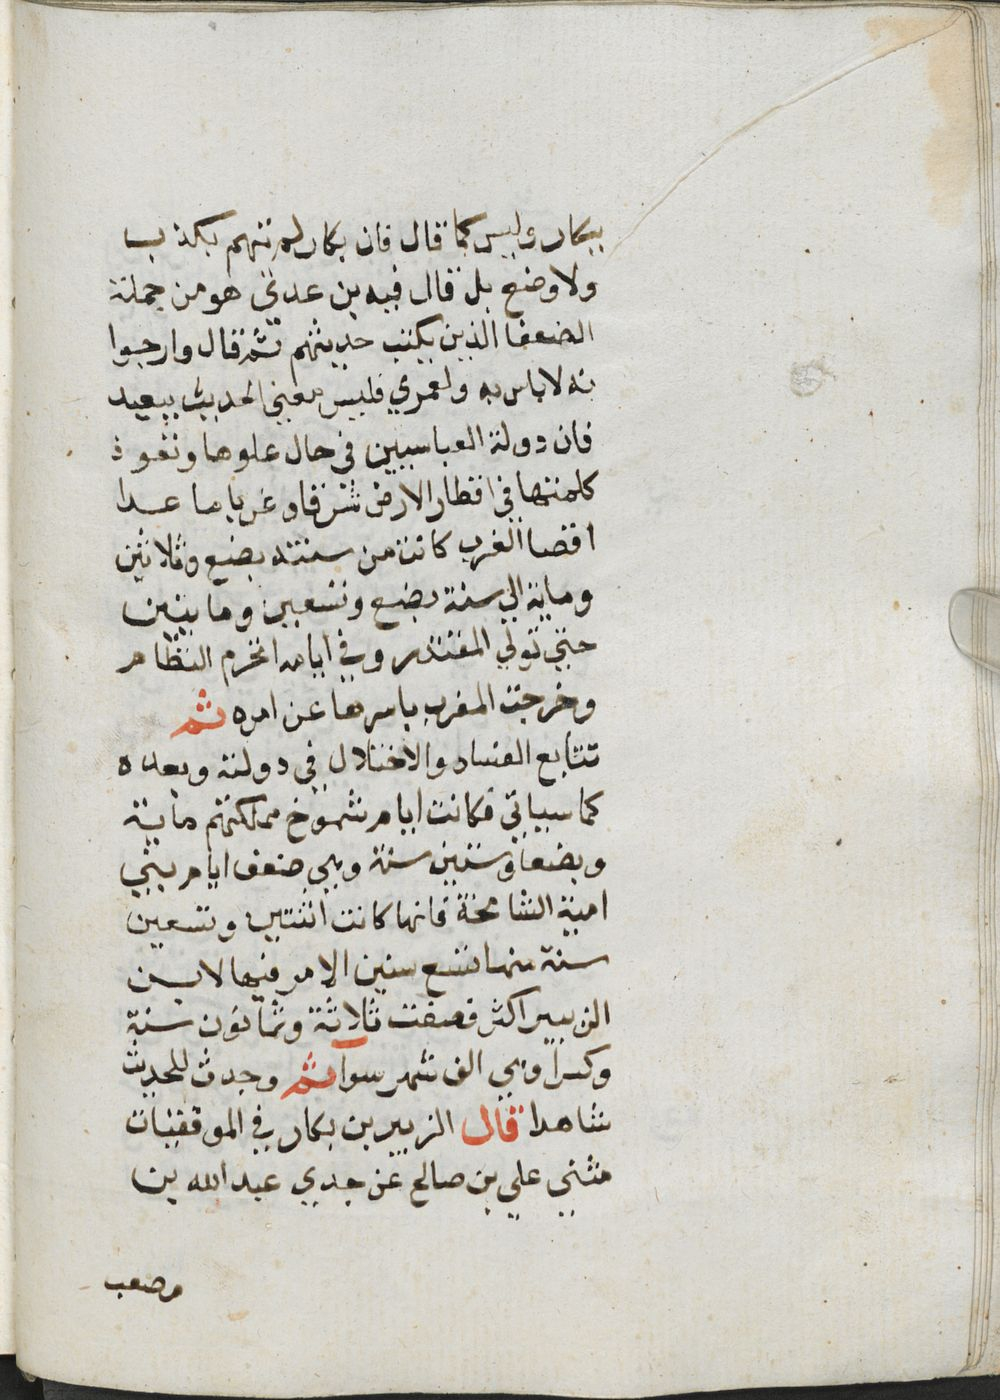 ببكار وليس كما قال فان بكار لم تتهم بكذب
ولا وضع بل قال فيه بن عدي هو من جملة
الضعفا الذين يكتب حديثهم ثم قال وارجوا
نه لا باس به ولعمري فليس معني الحديث ببعيد
فان دولة العباسيين في حال علوها ونفوذ
كلمتها في اقطار الارض شرقا وغربا ما عدا
اقصا الغرب كانت من سنته بضع وثلاثين
وماية الي سنة بضع وتسعين وما يتين
حتي تولي المقتدر وفي ايامه انخرم النظام
وخرجت المغرب باسرها عن امره ثم
تتابع الفساد والاختلال في دولته وبعده
كما سياتي فكانت ايام شموخ مملكتهم ماية
وبضعا وستين سنة وهي ضعف ايام بني
امية الشامخة فانها كانت اثنتين وتسعين
سنة منها تسع سنين الامر فيها لابن
الزبير اكثر فصفت ثلاثة وثمانون سنة
وكسرا وهي الف شهر سوا ثم وجدت للحديث
شاهدا قال الزبير بن بكار في الموفقيات
مثني علي بن صالح عن جدي عبد الله بن
مصعب